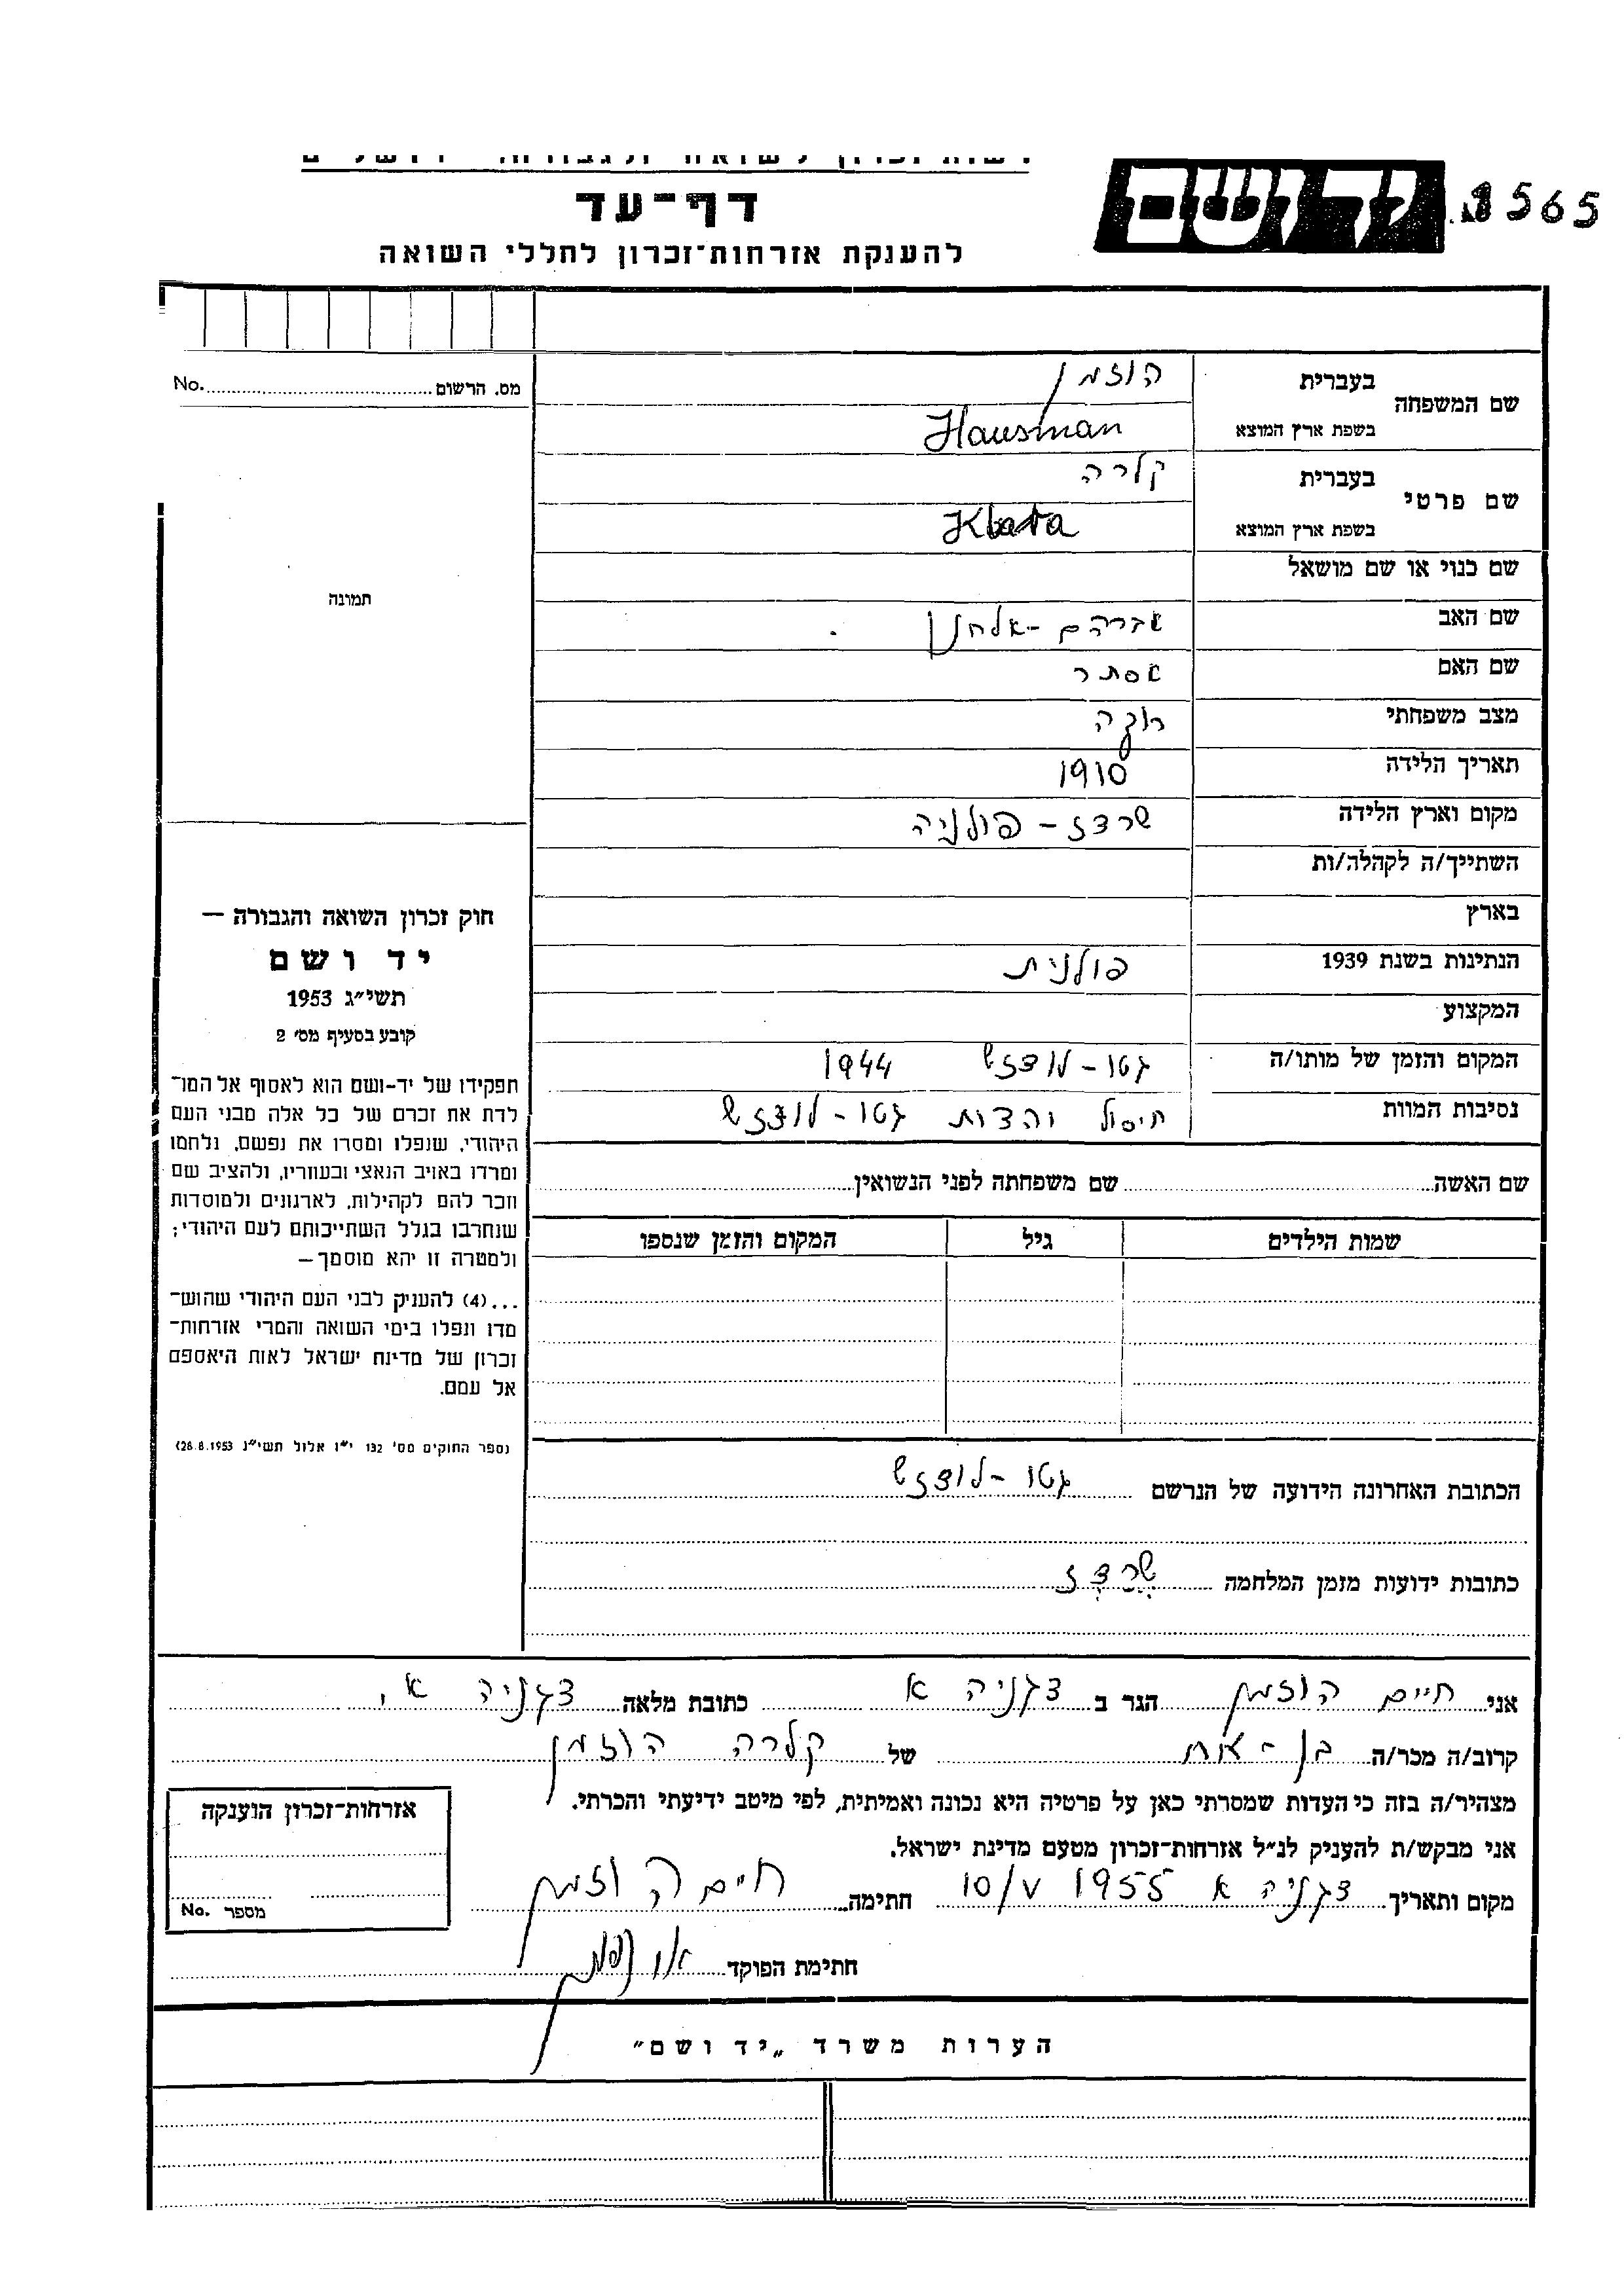 יד ושם
8565
דף-עד
להענקת אזרחות-זכרון לחללי השואה
מס. הרשום No.
שם המשפחה
בעברית הוזמן
בשפת ארץ המוצא Hausman
שם פרטי
בעברית קלרה
בשפת ארץ המוצא Klara
שם כנוי או שם מושאל
שם האב אברהם-אלחנן
שם האם אסתר
מצב משפחתי רוקה
תאריך הלידה 1910
מקום וארץ הלידה שרדז - פולניה
השתייך/ה לקהלה/ות
בארץ
הנתינות בשנת 1939 פולנית
המקצוע
המקום והזמן של מותו/ה גטו-לודזש 1944
נסיבות המוות חיסול גטו-לודזש
תמונה
חוק זכרון השואה והגבורה —
יד ושם
תשי"ג 1953
קובע בסעיף מס' 2
תפקידו של יד-ושם הוא לאסוף אל המו-
לדת את זכרם של כל אלה מבני העם
היהודי, שנפלו ומסרו את נפשם, נלחמו
ומרדו באויב הנאצי ובעוזריו, ולהציב שם
וזכר להם לקהילות, לארגונים ולמוסדות
שנחרבו בגלל השתייכותם לעם היהודי;
ולמטרה זו יהא מוסמך—
...(4) להעניק לבני העם היהודי שהוש-
מדו ונפלו בימי השואה והמרי אזרחות-
זכרון של מדינת ישראל לאות היאספם
אל עמם.
(ספר החוקים מס' 132 י"ז אלול תשי"ג 28.8.1953)
שם האשה שם משפחתה לפני הנשואין
שמות הילדים גיל המקום והזמן שנספו
הכתובת האחרונה הידועה של הנרשם גטו-לודזש
כתובות ידועות מזמן המלחמה שרדז
אני חיים הוזמן הגר ב דגניה א כתובת מלאה דגניה א'
קרוב/ה מכר/ה בן-אח של קלרה הוזמן
מצהיר/ה בזה כי העדות שמסרתי כאן על פרטיה היא נכונה ואמיתית, לפי מיטב ידיעתי והכרתי.
אני מבקש/ת להעניק לנ"ל אזרחות-זכרון מטעם מדינת ישראל.
מקום ותאריך דגניה א 10/V 1955 חתימה חיים הוזמן
חתימת הפוקד
אזרחות-זכרון הוענקה
מספר No.
הערות משרד „יד ושם"